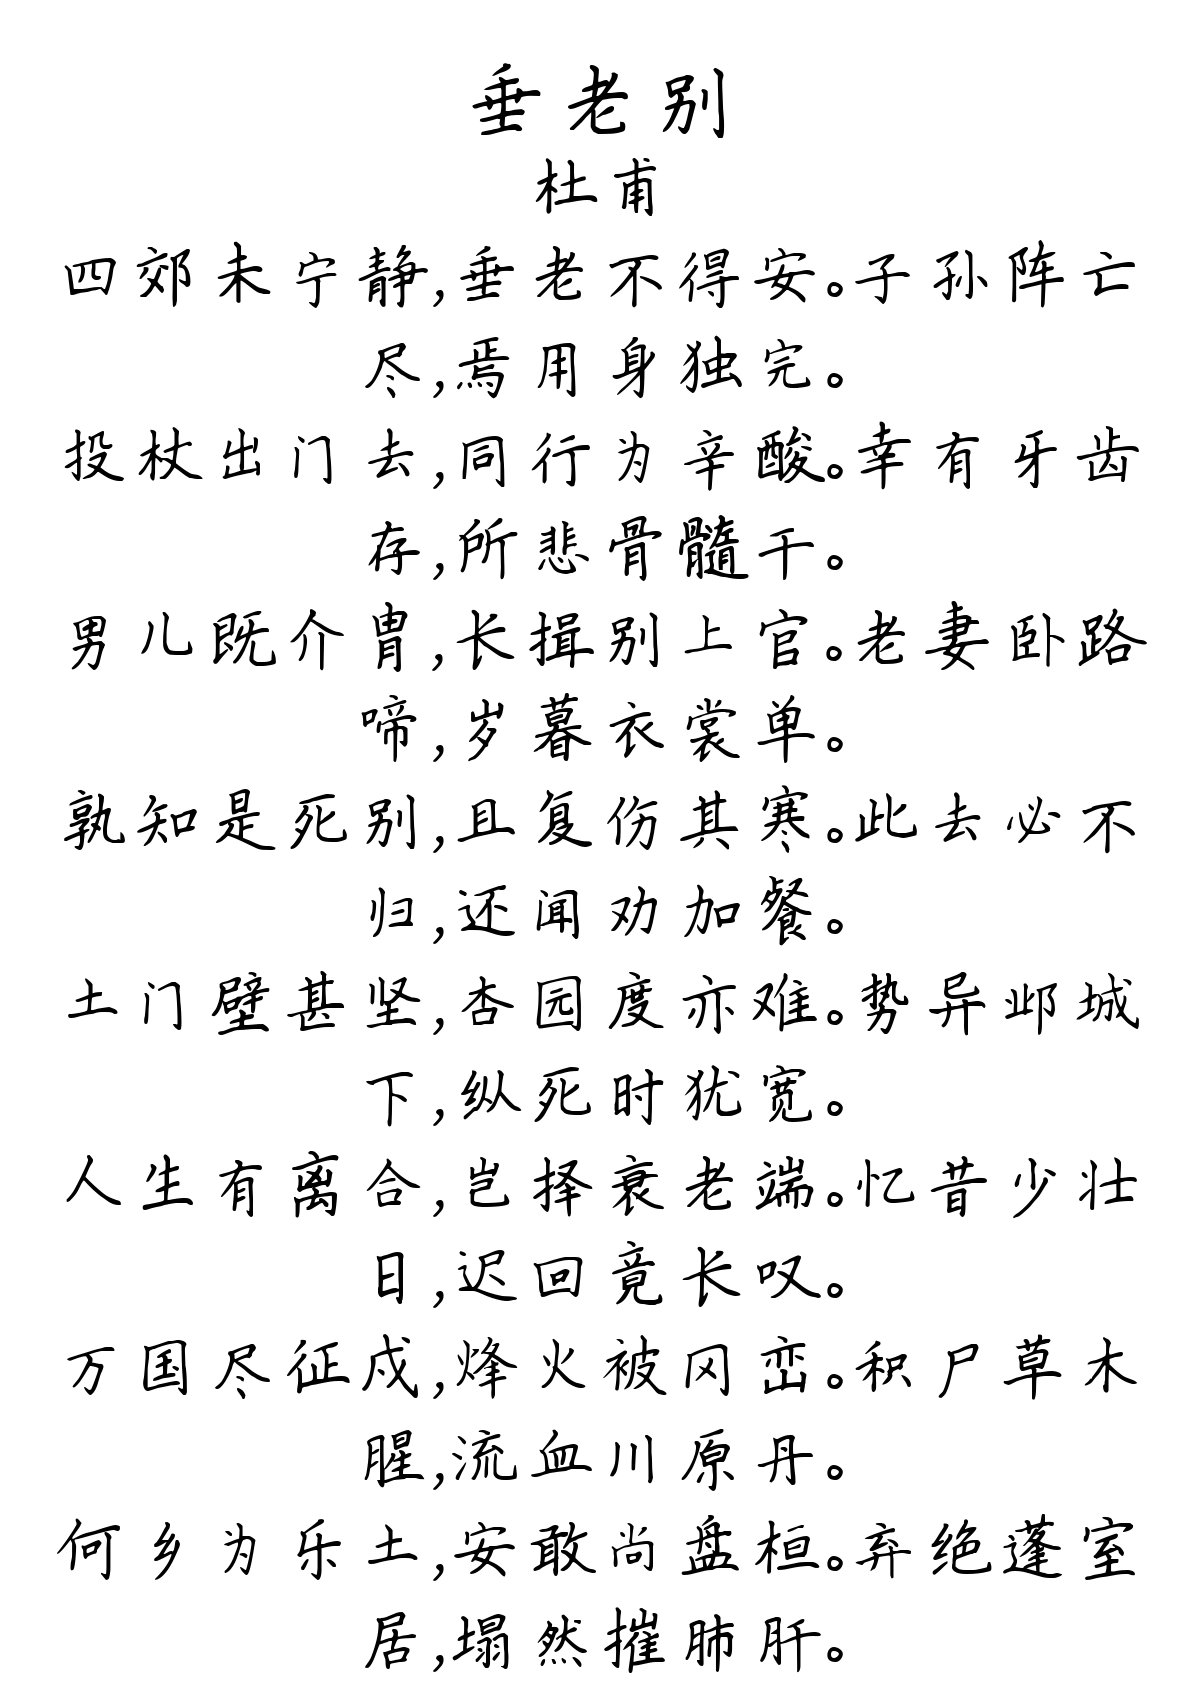 垂老别
杜甫
四郊未宁静,垂老不得安。子孙阵亡
尽,焉用身独完。
投杖出门去,同行为辛酸。幸有牙齿
存,所悲骨髓干。
男儿既介胄,长揖别上官。老妻卧路
啼,岁暮衣裳单。
孰知是死别,且复伤其寒。此去必不
归,还闻劝加餐。
土门壁甚坚,杏园度亦难。势异邺城
下,纵死时犹宽。
人生有离合,岂择衰老端。忆昔少壮
日,迟回竟长叹。
万国尽征戍,烽火被冈峦。积尸草木
腥,流血川原丹。
何乡为乐土,安敢尚盘桓。弃绝蓬室
居,塌然摧肺肝。